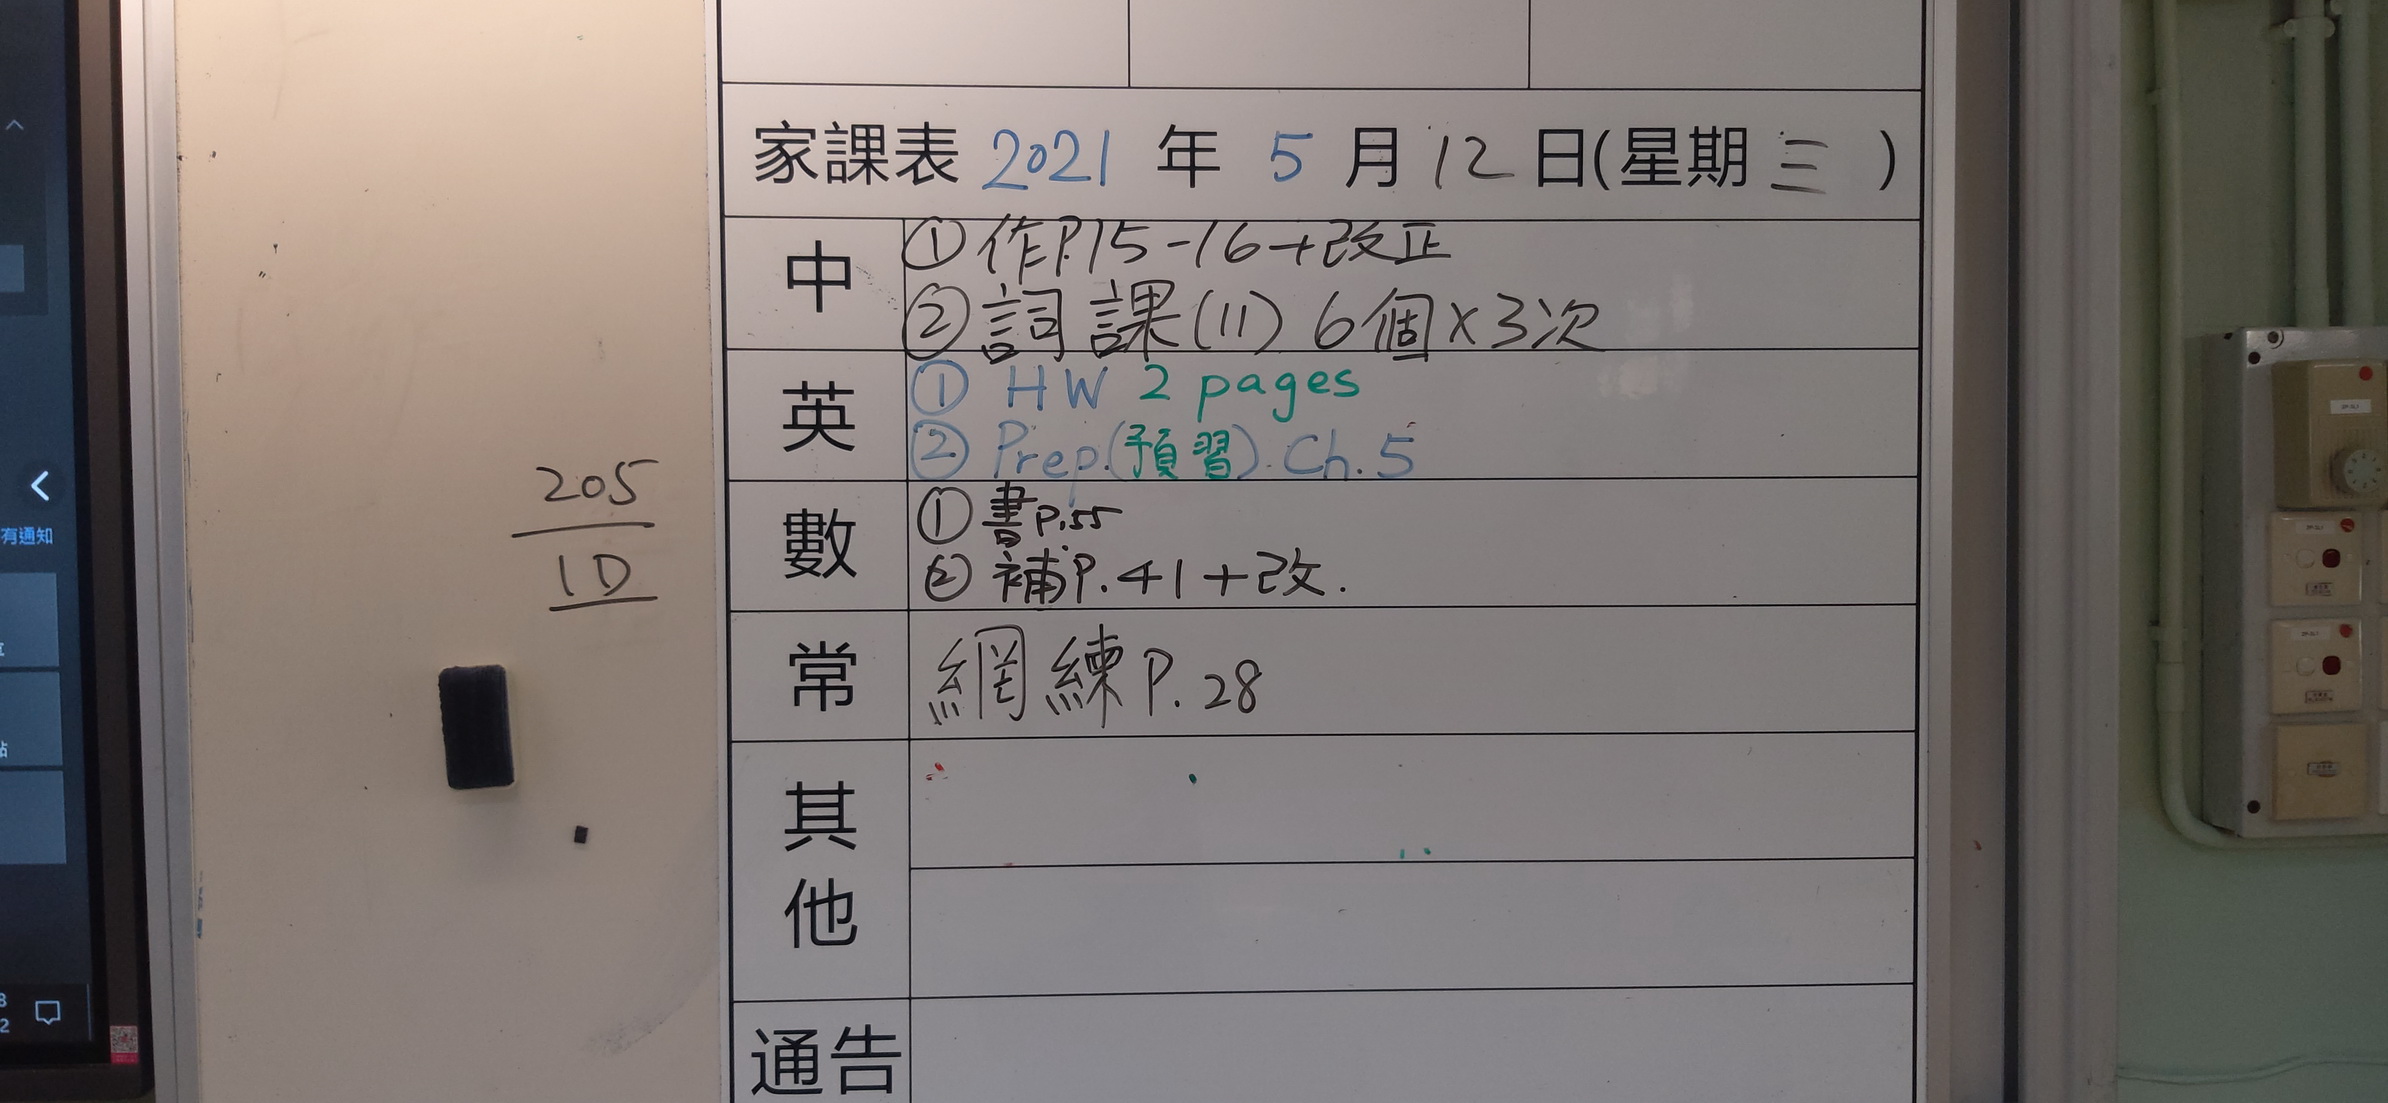 家課表 2021 年 5 月 12 日(星期 三 )
中
① 作P.15-16+改正
② 詞 課(11) 6個×3次
英
① HW 2 pages
② Prep.(預習). Ch.5
數
① 書P.55
② 補P.41+改.
常
網練P.28
其他
通告
205
1D
有通知